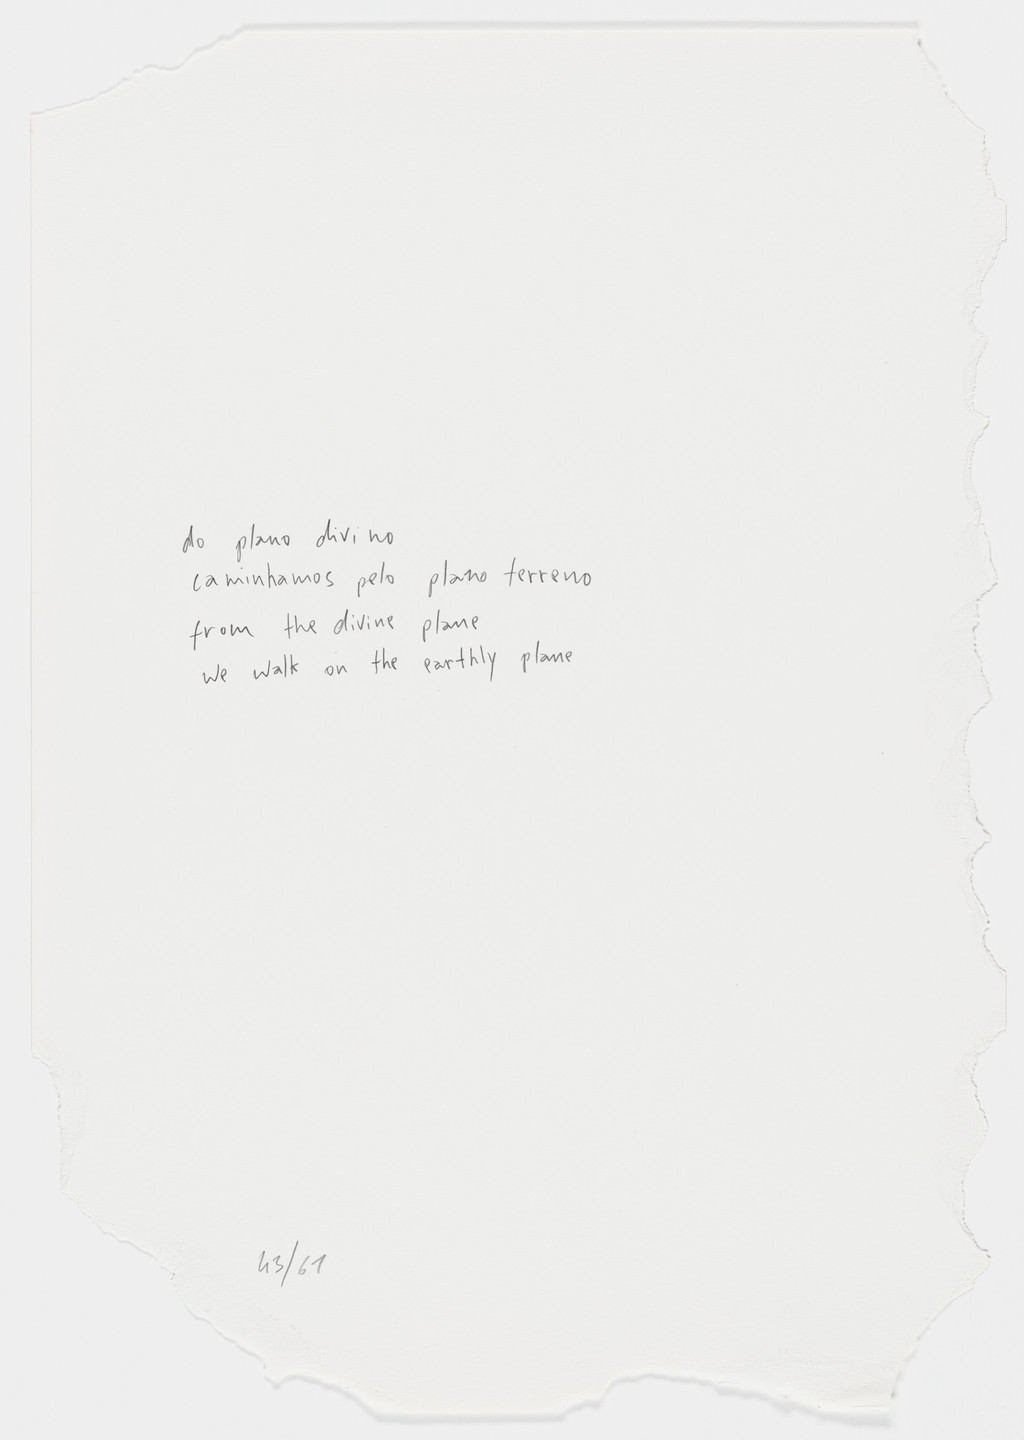 do plano divino
caminhamos pelo plano terreno
from the divine plane
we walk on the earthly plane
43/61